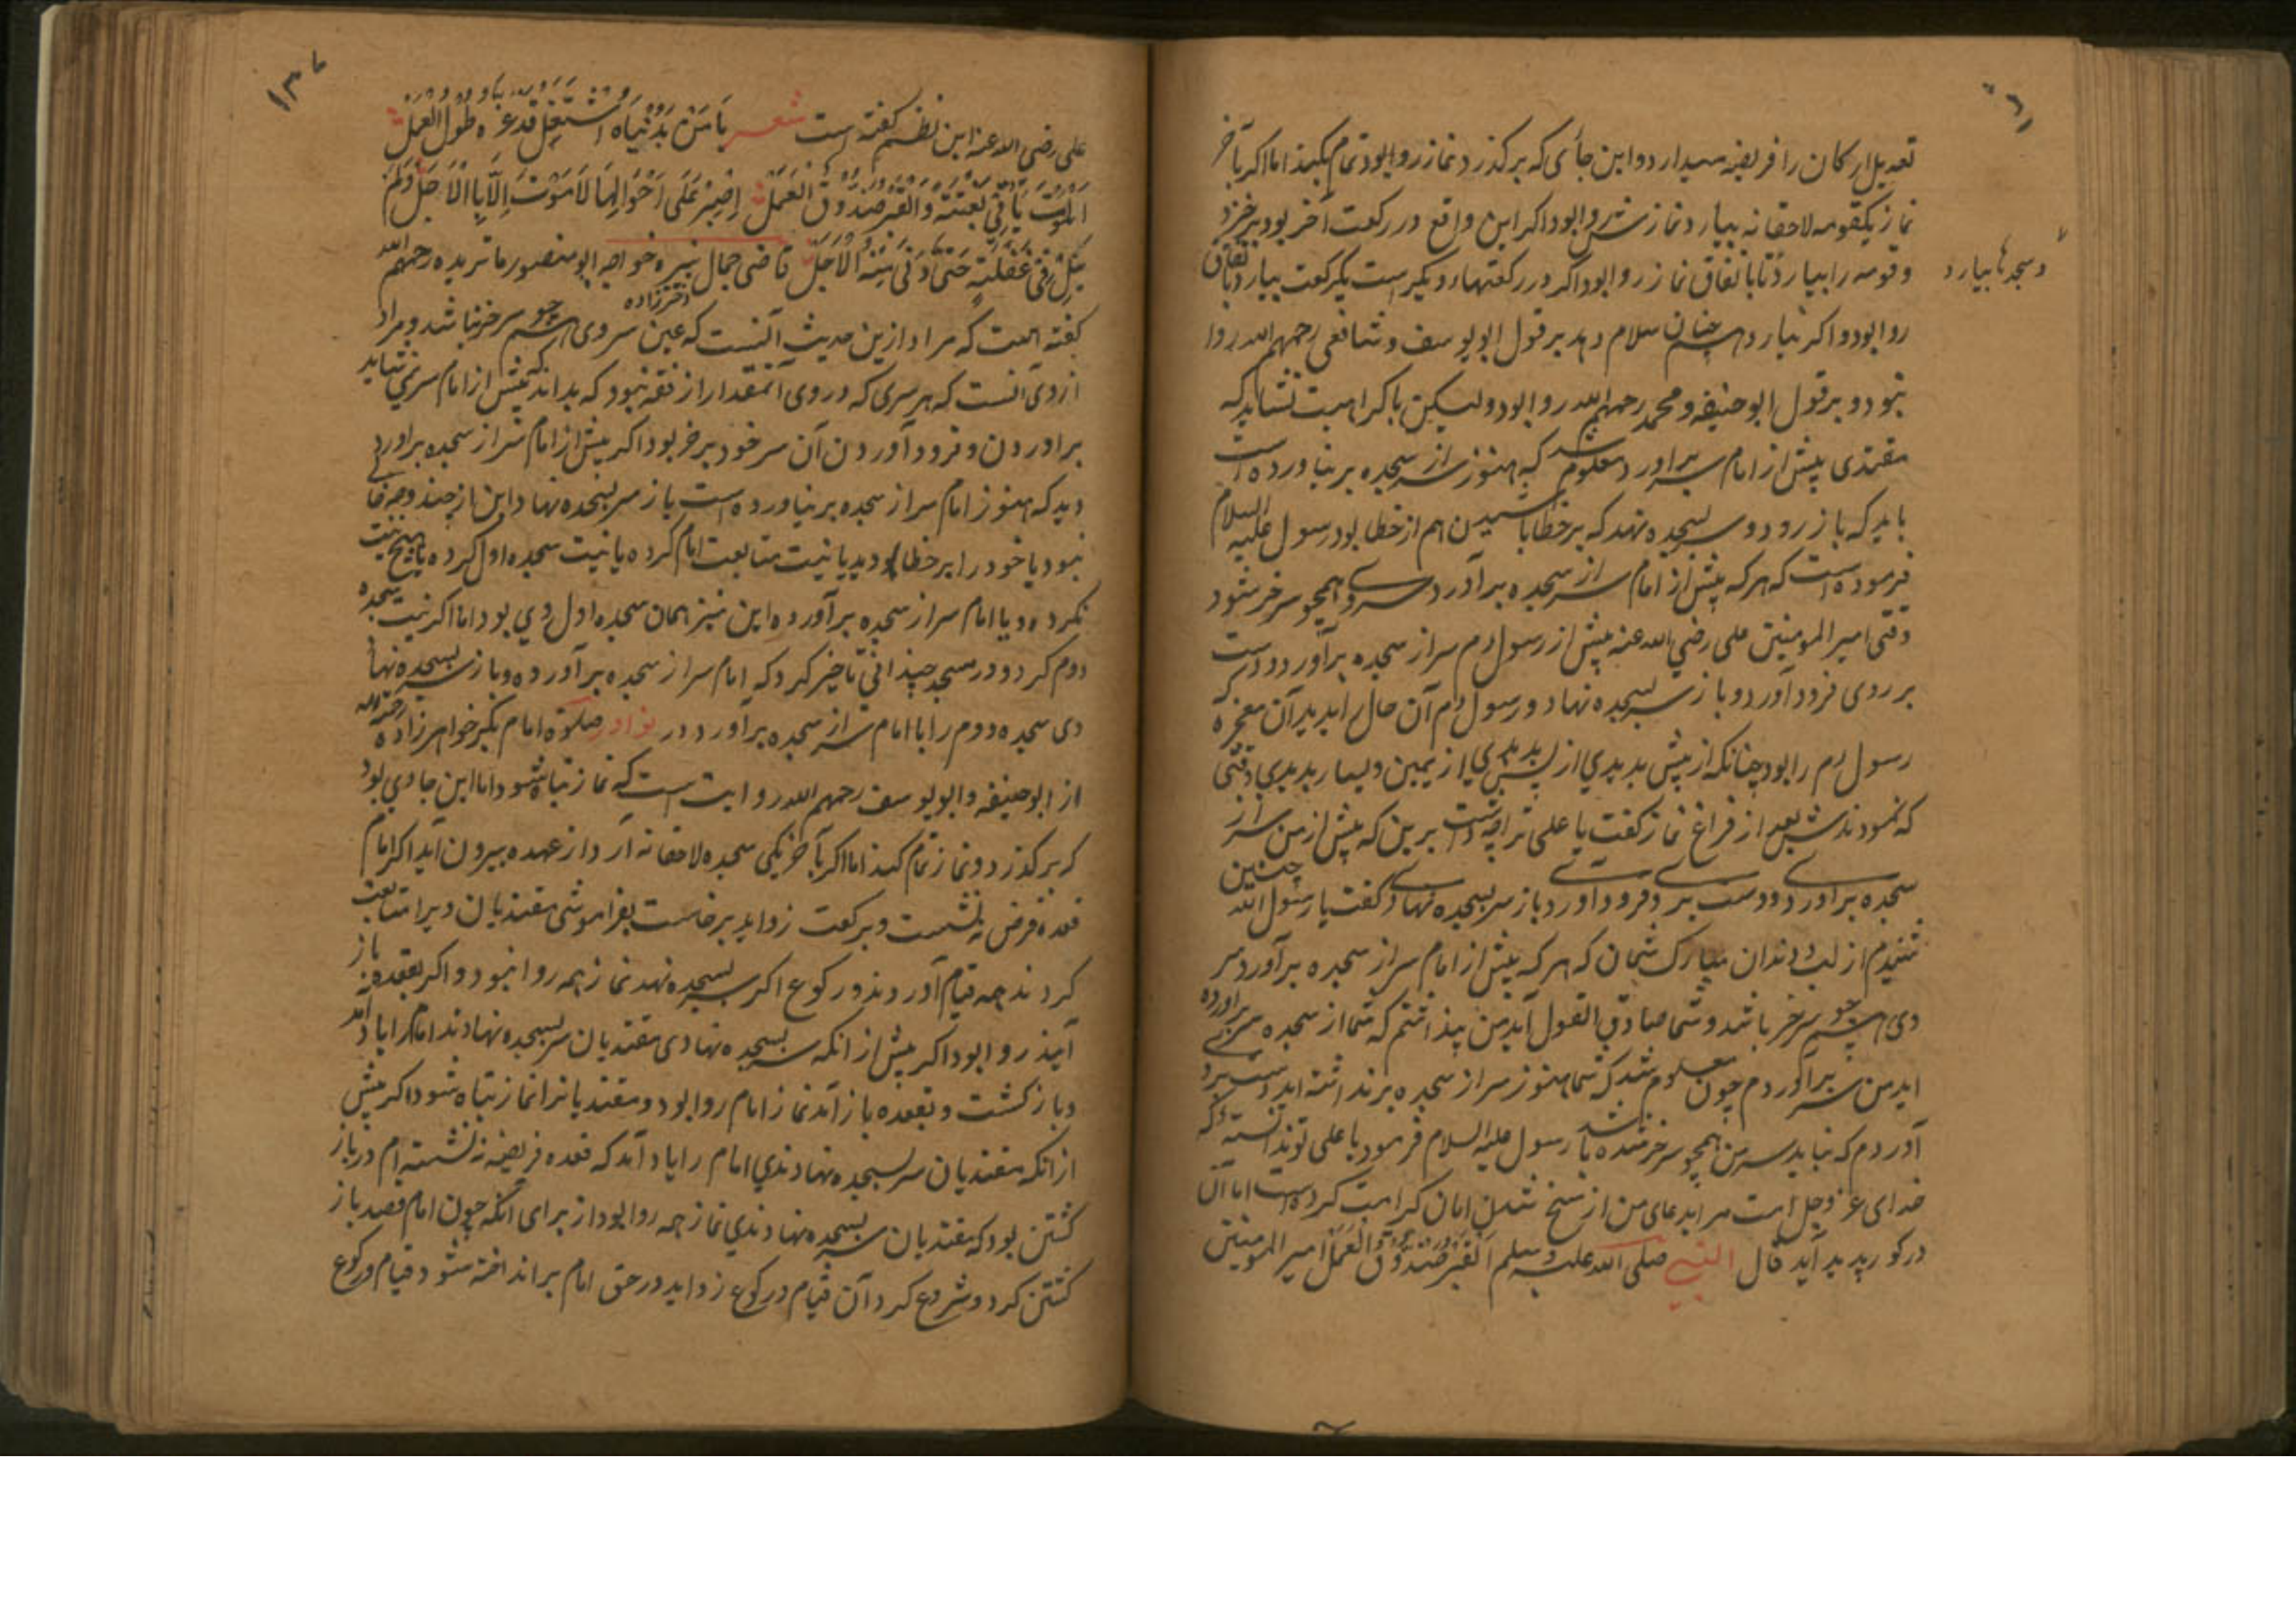 تعدیل ارکان را فریضه میدارد و این جائی که بر کذرد نماز روا بود تمام بکند اما اکر بآخر
نماز یکقومه لاحقانه بیارد نمازش روا بود و اکر این واقع در رکعت آخر بود برخیزد
وقومه را بیارد تا باتفاق نماز روا بود اکر در رکعتهاء دیکر است یکرکعت بیارد باتفاق
و سجدها بیارد
روا بود و اکر نیارد همچنان سلام دهد بر قول ابو یوسف و شافعی رحمهم الله روا
نبود و بر قول ابو حنیفه و محمد رحمهم الله روا بود ولیکن باکراهیت نشاید که
مقتدی پیش از امام سر براورد معلوم شد که هنوز سر از سجده بر نیاورده است
باید که باز رود و سر بسجده نهد که بر خطا باشیدن هم از خطا بود رسول علیه السلام
فرموده است که هر که پیش از امام سر از سجده برآورد سر وی همچو سر خر شود
وقتی امیر المومنین علی رضی الله عنه پیش از رسول م سر از سجده برآورد و دست
بر روی فرود آورد و باز سر بسجده نهاد و رسول م آن حال را بدید آن معجزه که
رسول م را بود چنانکه از پیش بدیدی از پس بدیدی از یمین و یسار بدیدی وقتی
که نمودندش بعد از فراغ نماز کفت یا علی ترا چه داشت برین که پیش از من سر از
سجده براوردی و دست بر وی فرود اوردی باز سر بسجده نهادی کفت یا رسول الله چنین
شنیدم از لب و دندان مبارک شمایان که هر که پیش از امام سر از سجده برآورد سر
وی همچو سر خر باشد و شما صادق القول آید من پنداشتم که شما از سجده سر براورده
اید من سر برآوردم چون معلوم شد که شما هنوز سر از سجده برنداشته اید دست بر
آوردم که نباید سر من همچو سر خر شده باشد رسول علیه السلام فرمود یا علی تو ندانسته که
خدای عز وجل امت مرا بدعای من از مسخ شدن امان کرامت کرده است اما آن
در کور پدید آید قال النبی صلی الله علیه وسلم القبر صندوق العمل امیر المومنین
۱۳۰
علی رضی الله عنه این نظم کفته است شعر یا من بدنیاه اشتغل قد غره طول العمل
الموت یاتی بغتة والقبر صندوق العمل اصبر علی احوالها لا موت الا بالاجل ولم
یزل فی غفلة حتی دنی منه الاجل قاضی جمال نبیره خواجه ابو منصور ماتریده رحمهم الله
دخترزاده
کفته است که مراد ازین حدیث آنست که عین سر وی همچو سر خر نباشد و مراد
از وی آنست که هر سری که در وی آنمقدار از فقه نبود که بداند که پیش از امام سر نمی شاید
براوردن و فرود آوردن آن سر خود بر خر بود اکر پیش از امام سر از سجده براورد
دید که هنوز امام سر از سجده بر نیاورده است باز سر بسجده نهاد این از چند وجه خالی
نبود یا خود را بر خطا دید یا نیت متابعت امام کرده یا نیت سجده اول کرده یا هیچ نیت
نکرده و یا امام سر از سجده برآورده این نیز همان سجده اول وی بود اما اکر نیت سجده
دوم کرد و در سجده چندانی تاخیر کرد که امام سر از سجده برآورده و باز سر بسجده نهاد
وی سجده دوم را با امام سر از سجده برآورد در نوادر صلوة امام بکر خواهرزاده رحمه الله
از ابو حنیفه و ابو یوسف رحمهم الله روایت است که نماز تباه شود اما این جا وی بود
که بر کذرد و نماز تمام کند اما اکر بآخر یکی سجده لاحقانه آرد از عهده بیرون آید اکر امام
قعده فرض نه نشست و بر رکعت زواید برخاست بفراموشی مقتدیان ویرا متابعت
کردند همه قیام آوردند و رکوع اکر سر بسجده نهد نماز همه روا نبود و اکر بقعده باز
آیند روا بود اکر پیش از انکه سر بسجده نهادی مقتدیان سر بسجده نهادند امام را یاد آمد
و باز کشت و بقعده باز آمد نماز امام روا بود و مقتدیانرا نماز تباه شود اکر پیش
از انکه مقتدیان سر بسجده نهادندی امام را یاد آمد که قعده فریضه نه نشسته ام در باز
کشتن بود که مقتدیان سر بسجده نهادندی نماز همه روا بود از برای آنکه چون امام قصد باز
کشتن کرد و شروع کرد آن قیام و رکوع زواید در حق امام برانداخته شود و قیام و رکوع